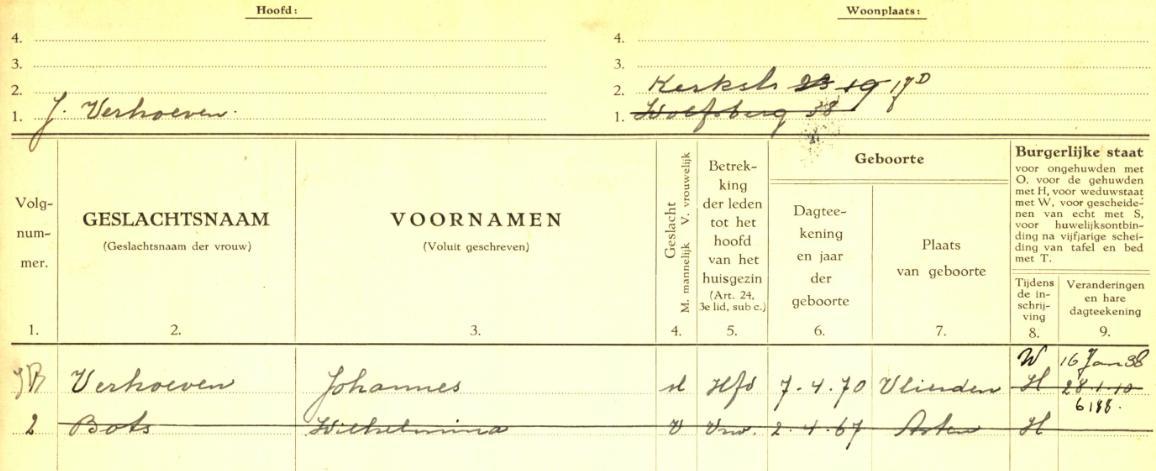 Hoofd: Woonplaats:
4. 4.
3. 3.
2. 2. Kerkstr 23 19 17D
1. J. Verhoeven. 1. Wolfsberg 38
Volg-
num-
mer.
GESLACHTSNAAM
(Geslachtsnaam der vrouw)
VOORNAMEN
(Voluit geschreven)
Geslacht
M. mannelijk V. vrouwelijk
Betrek-
king
der leden
tot het
hoofd
van het
huisgezin
(Art. 24,
3e lid, sub c.)
Geboorte
Dagtee-
kening
en jaar
der
geboorte
Plaats
van geboorte
Burgerlijke staat
voor ongehuwden met
O, voor de gehuwden
met H, voor weduwstaat
met W, voor gescheide-
nen van echt met S,
voor huwelijksontbin-
ding na vijfjarige schei-
ding van tafel en bed
met T.
Tijdens
de in-
schrij-
ving
Veranderingen
en hare
dagteekening
1. 2. 3. 4. 5. 6. 7. 8. 9.
W 16 Jan 38
Verhoeven Johannes M Hfd 7.4.70 Vlierden H 28.1.10
2 Bots Wilhelmina V Vrw. 2.4.67 Asten H